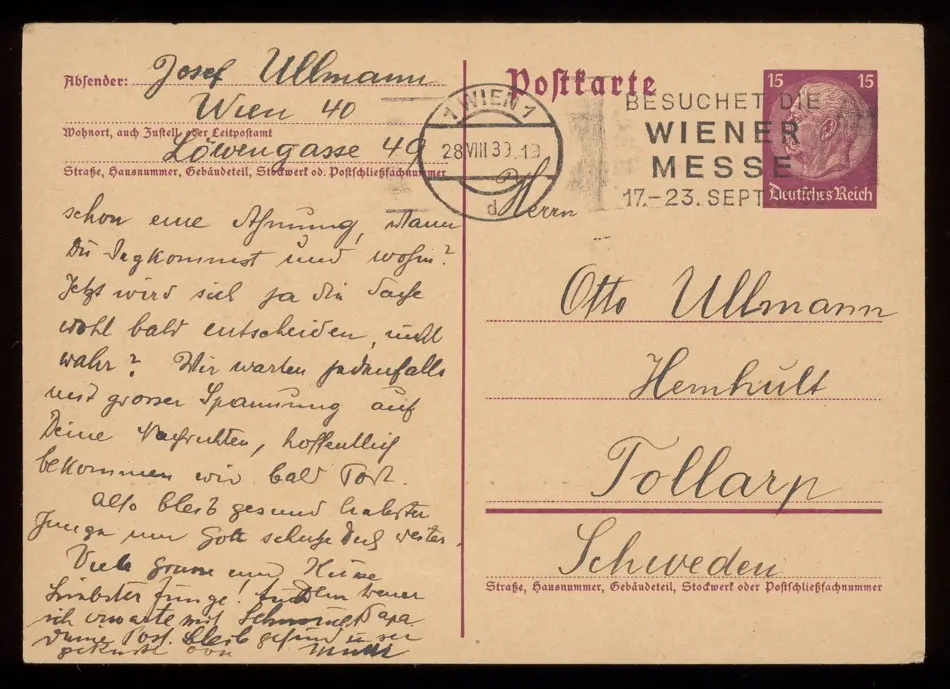 Absender: Josef Ullmann
Wien 40
Wohnort, auch Zustell- oder Leitpostamt
Löwengasse 49
Straße, Hausnummer, Gebäudeteil, Stockwerk od. Postschließfachnummer
schon eine Ahnung, wann
Du wegkommst und wohin?
Jetzt wird sich ja die Sache
wohl bald entscheiden, nicht
wahr? Wir warten jedenfalls
mit grosser Spannung auf
Deine Nachrichten, hoffentlich
bekommen wir bald Post.
Also bleib gesund liebster
Junge und Gott schütze Dich weiter.
Viele Grüsse und Küsse
Liebster Junge! Dein treuer
ich erwarte mit Papa
deine Post. bleib gesund u sei
geküsst von Mutti
Postkarte
1 WIEN 1
28.VIII 39.19
d
BESUCHET DIE
WIENER
MESSE
17.-23. SEPT
15 15
Deutsches Reich
Herrn
Otto Ullmann
Hemhult
Tollarp
Schweden
Straße, Hausnummer, Gebäudeteil, Stockwerk oder Postschließfachnummer